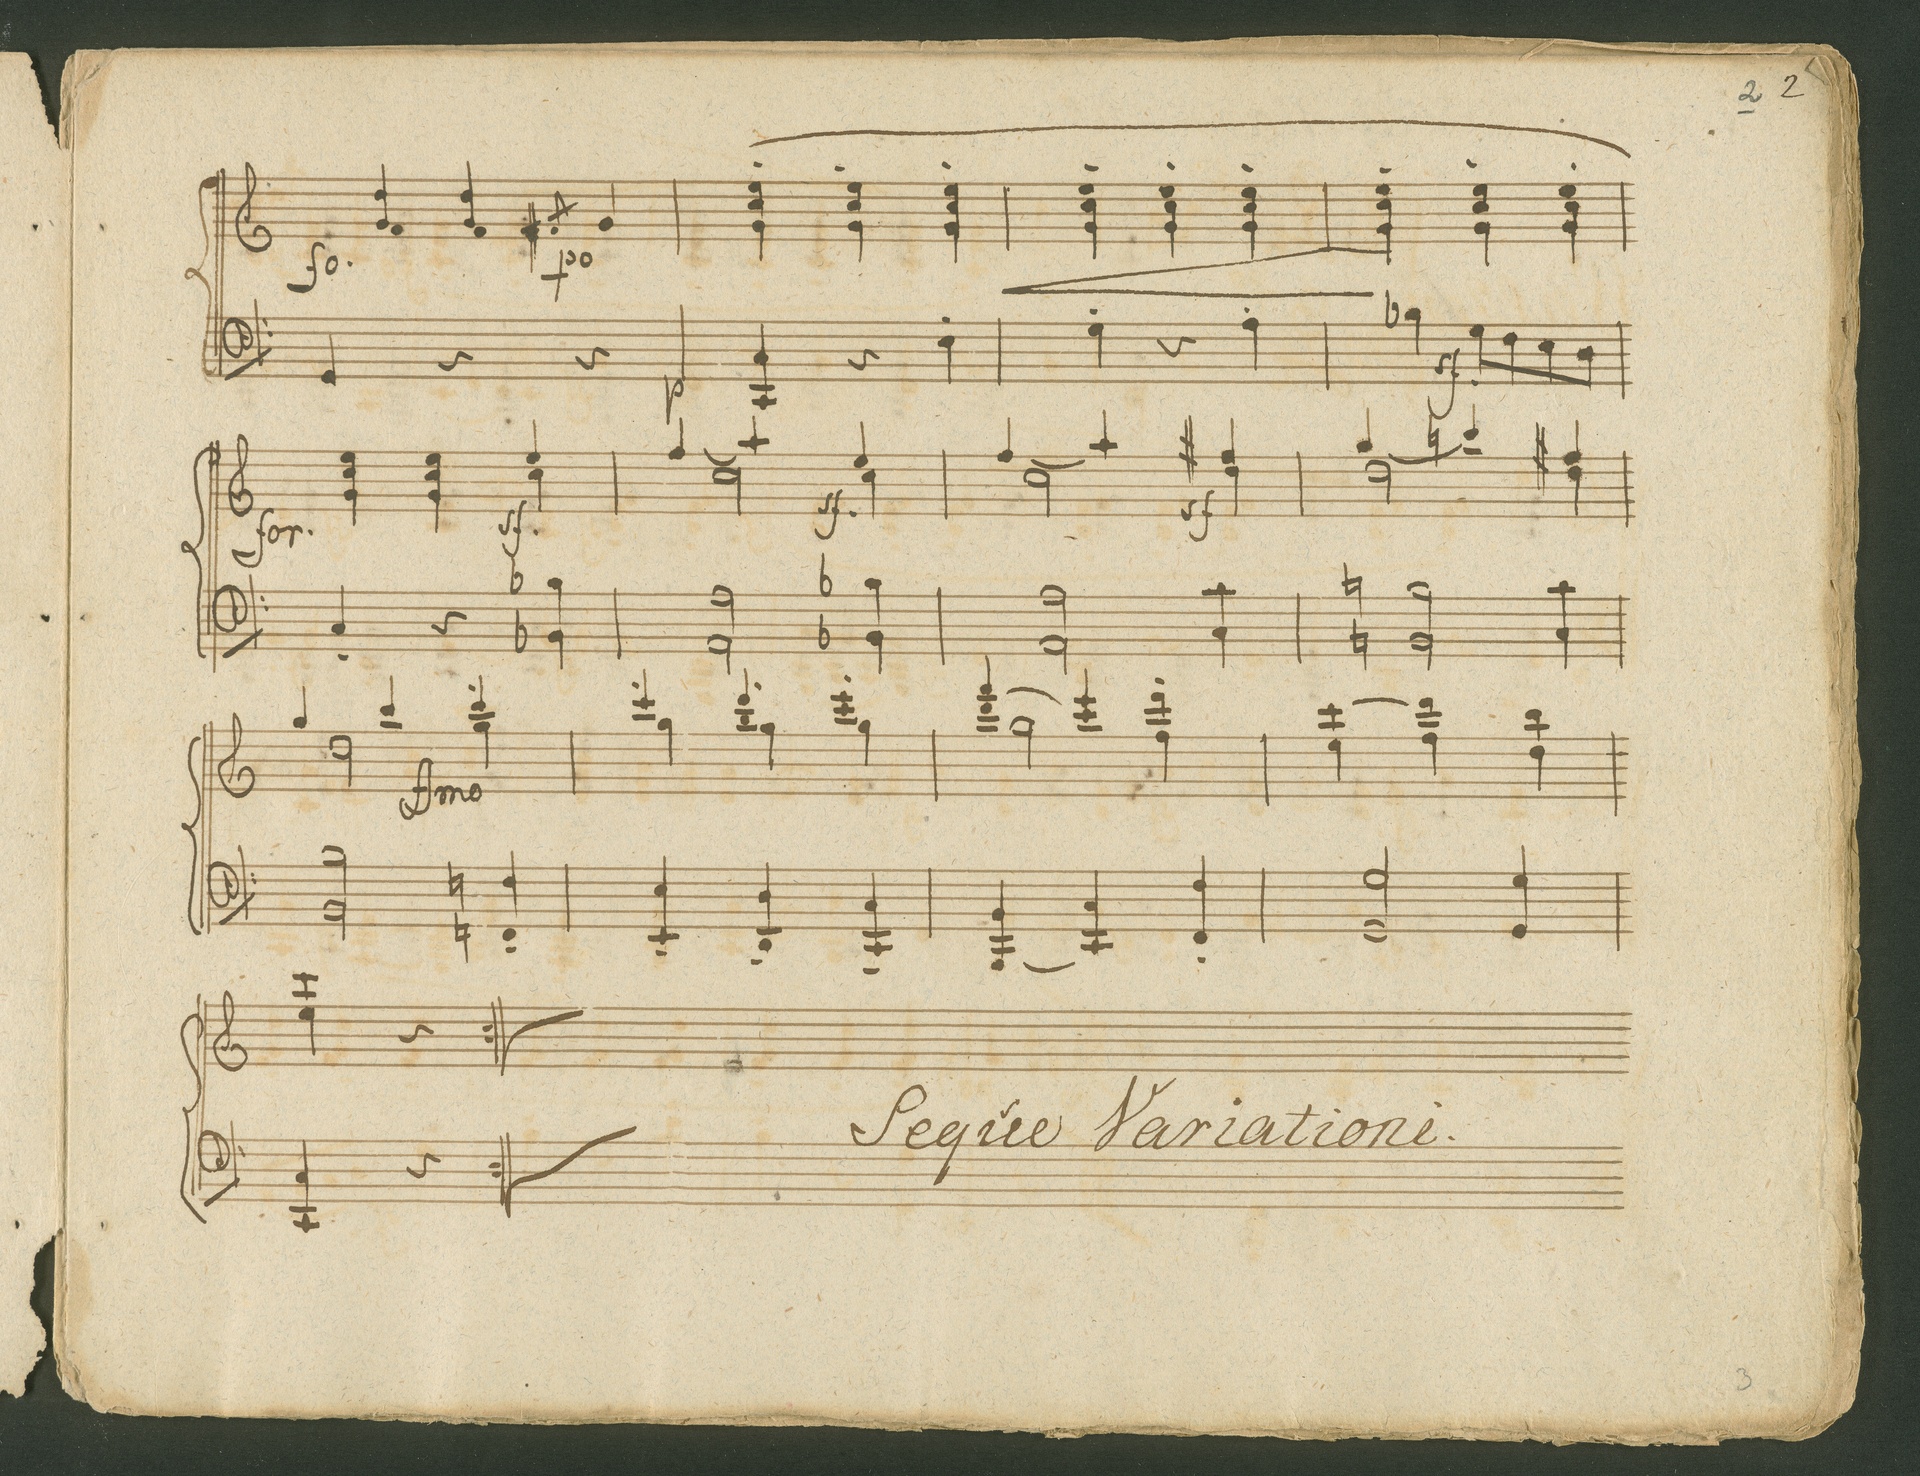 2 2
fo. po
p sf.
for. sf. sf. sf
fmo
Seqúe Variationi.
3